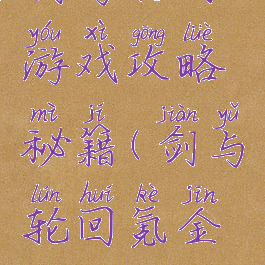 yóu xì gōng lüè
游戏攻略
mì jí jiàn yǔ
秘籍(剑与
lún huí kè jīn
轮回氪金